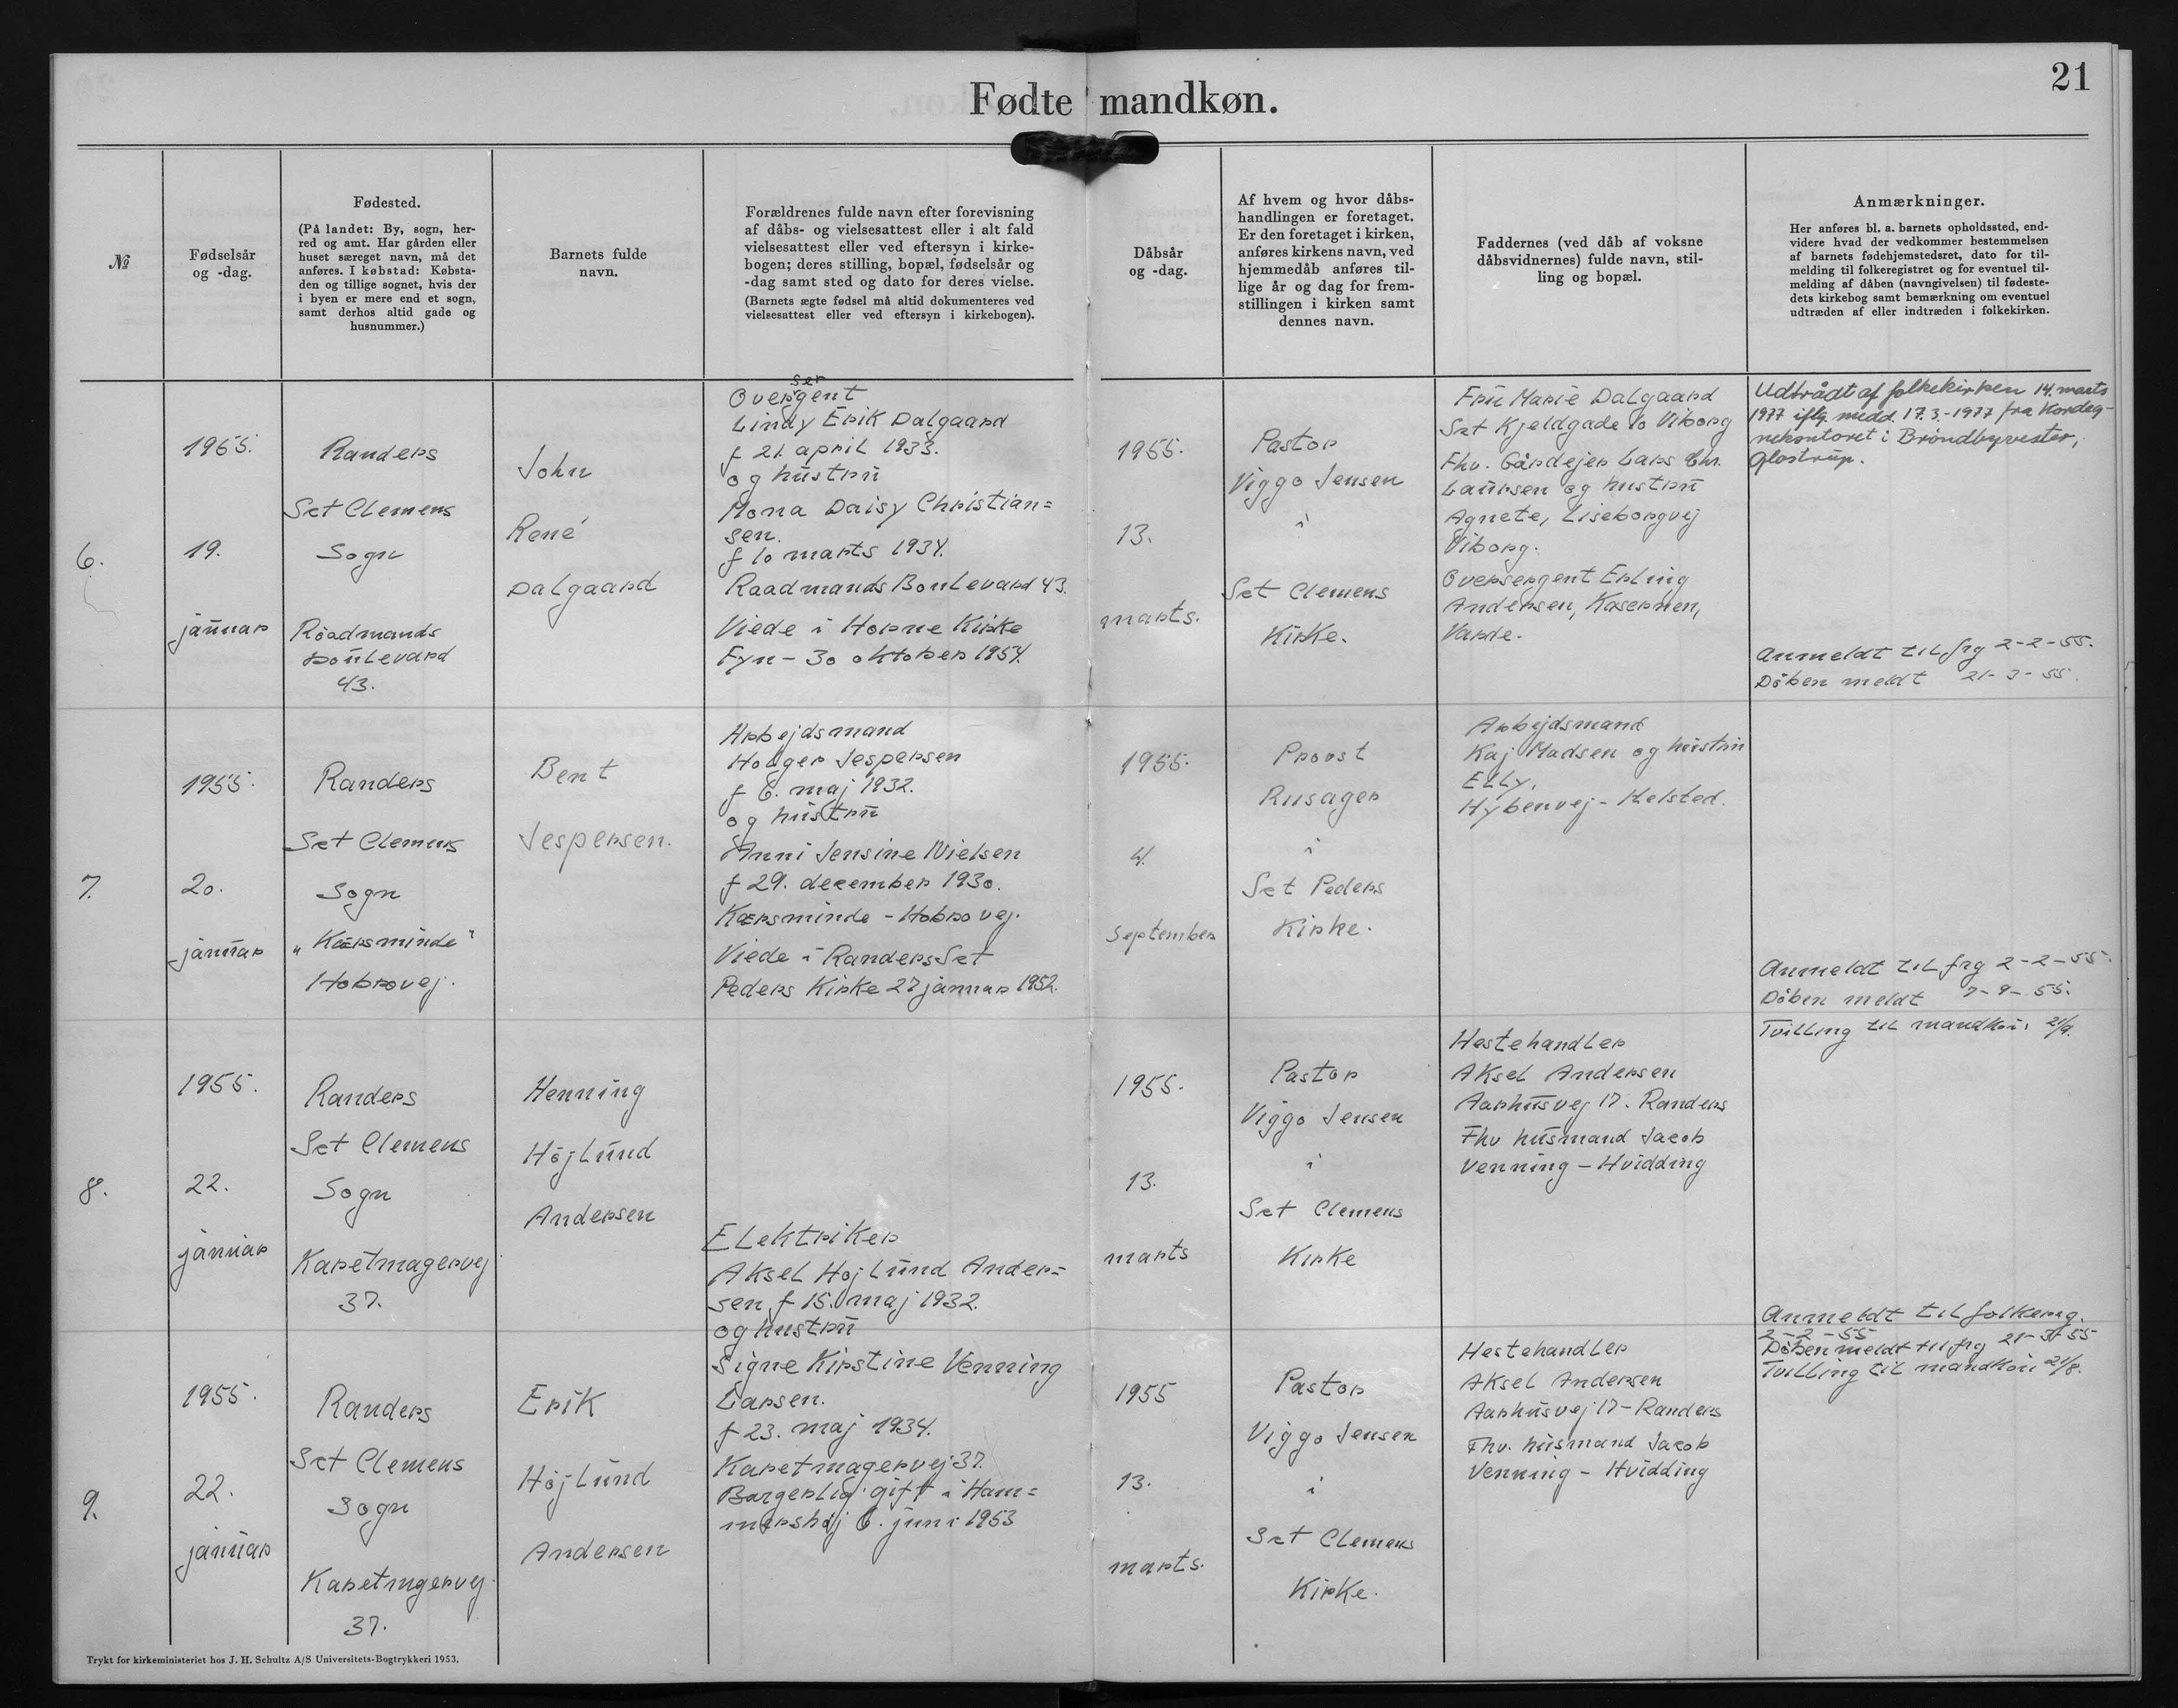 21
Fødte mandkøn.
№
Fødselsår
og -dag.
Fødested.
(På landet: By, sogn, her-
red og amt. Har gården eller
huset særeget navn, må det
anføres. I købstad: Købsta-
den og tillige sognet, hvis der
i byen er mere end et sogn,
samt derhos altid gade og
husnummer.)
Barnets fulde
navn.
Forældrenes fulde navn efter forevisning
af dåbs- og vielsesattest eller i alt fald
vielsesattest eller ved eftersyn i kirke-
bogen; deres stilling, bopæl, fødselsår og
-dag samt sted og dato for deres vielse.
(Barnets ægte fødsel må altid dokumenteres ved
vielsesattest eller ved eftersyn i kirkebogen).
Dåbsår
og -dag.
Af hvem og hvor dåbs-
handlingen er foretaget.
Er den foretaget i kirken,
anføres kirkens navn, ved
hjemmedåb anføres til-
lige år og dag for frem-
stillingen i kirken samt
dennes navn.
Faddernes (ved dåb af voksne
dåbsvidnernes) fulde navn, stil-
ling og bopæl.
Anmærkninger.
Her anføres bl. a. barnets opholdssted, end-
videre hvad der vedkommer bestemmelsen
af barnets fødehjemstedsret, dato for til-
melding til folkeregistret og for eventuel til-
melding af dåben (navngivelsen) til fødeste-
dets kirkebog samt bemærkning om eventuel
udtræden af eller indtræden i folkekirken.
6.
1955.
19.
januar
Randers
Sct Clemens
Sogn
Raadmands
Boulevard
43.
John
René
Dalgaard
ser
Overgent
Lindy Erik Dalgaard
f 21. april 1933.
og hustru
Mona Daisy Christian=
sen.
f 10 marts 1934.
Raadmands Boulevard 43.
Viede i Horne Kirke
Fyn - 30 oktober 1954.
1955.
13.
marts.
Pastor
Viggo Jensen
i
Sct Clemens
Kirke.
Fru Marie Dalgaard
Sct Kjeldgade 10 Viborg
Fhv. Gårdejer Lars Chr.
Laursen og hustru
Agnete, Liseborgvej
Viborg.
Oversergent Erling
Andersen, Kasernen,
Varde.
Udtrådt af folkekirken 14. marts
1977 iflg. medd. 17.3.-1977 fra Kordeg-
nekontoret i Brøndbyvester,
Glostrup.
Anmeldt til frg 2-2-55.
Dåben meldt 21-3-55.
7.
1955.
20.
januar
Randers
Sct Clemens
Sogn
"Kærsminde"
Hobrovej.
Bent
Jespersen.
Arbejdsmand
Holger Jespersen
f 6. maj 1932.
og hustru
Anni Jensine Nielsen
f 29. december 1930.
Kærsminde - Hobrovej.
Viede i Randers Sct
Peders Kirke 27 januar 1952.
1955.
4.
September
Provst
Rusager
i
Sct Peders
Kirke.
Arbejdsmand
Kaj Madsen og hustru
Elly,
Hybenvej - Helsted.
Anmeldt til frg 2-2-55.
Dåben meldt 7-9-55.
8.
1955.
22.
januar
Randers
Sct Clemens
Sogn
Karetmagervej
37.
Henning
Højlund
Andersen
Elektriker
Aksel Højlund Ander=
sen, f 15. maj 1932.
og hustru
Signe Kirstine Venning
Larsen.
f 23. maj 1934.
Karetmagervej 37.
Borgerlig gift i Ham=
mershøj 6. juni 1953
1955.
13.
marts
Pastor
Viggo Jensen
i
Sct Clemens
Kirke
Hestehandler
Aksel Andersen
Aarhusvej 17. Randers
Fhv husmand Jacob
Venning - Hvidding
Tvilling til mandkøn 21/9.
Anmeldt til folkereg.
2-2-55
Dåben meldt til frg 21-3-55
9.
1955.
22.
januar
Randers
Sct Clemens
Sogn
Karetmgervej.
37.
Erik
Højlund
Andersen
1955
13.
marts.
Pastor
Viggo Jensen
i
Sct Clemens
Kirke.
Hestehandler
Aksel Andersen
Aarhusvej 17 - Randers
Fhv. husmand Jacob
Venning - Hvidding
Tvilling til mandkøn 21/8.
Trykt for kirkeministeriet hos J. H. Schultz A/S Universitets-Bogtrykkeri 1953.